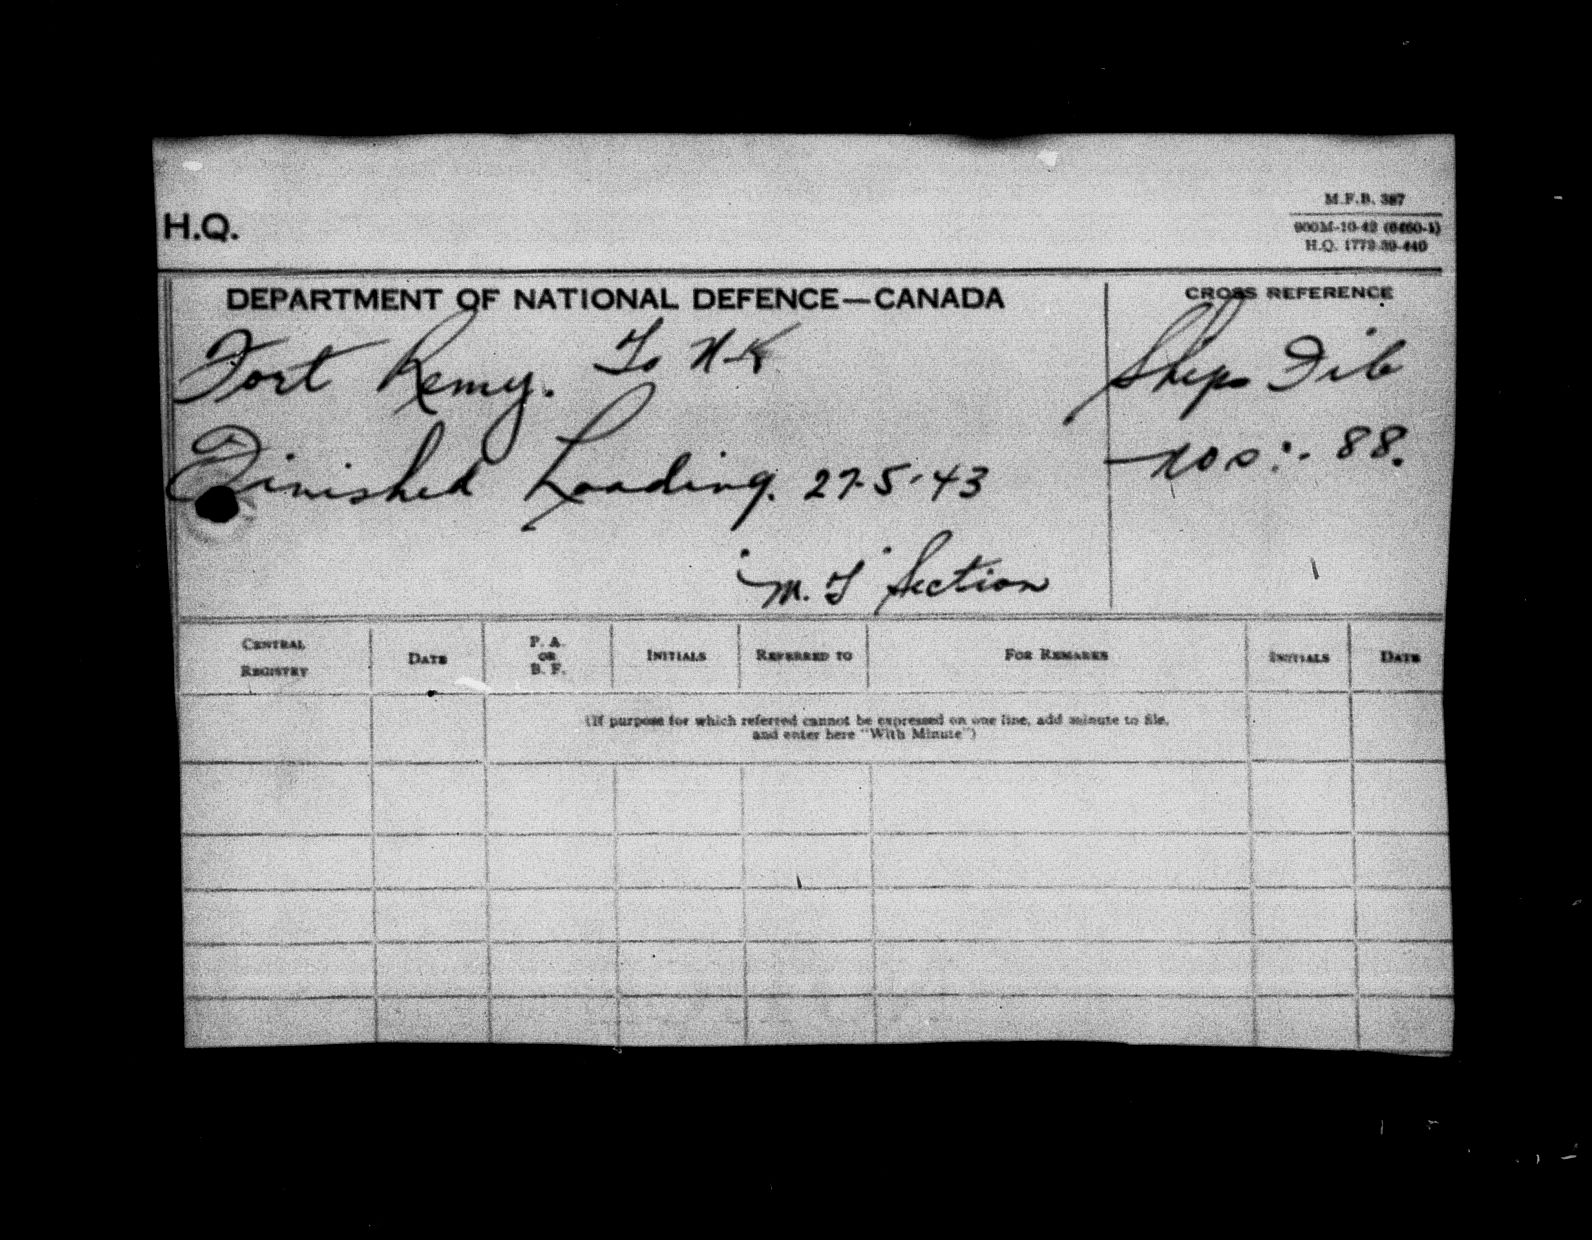 H.Q.
M.F.B. 387
900M-10-42 (6460-1)
H.Q. 1772-39-440
DEPARTMENT OF NATIONAL DEFENCE—CANADA
CROSS REFERENCE
Fort Remy. To
Ships File
Finished Loading. 27-5-43
nos:- 88.
"M.T" Section
CENTRAL REGISTRY
DATE
P. A. OR B. F.
INITIALS
REFERRED TO
FOR REMARKS
INITIALS
DATE
(If purpose for which referred cannot be expressed on one line, add minute to file,
and enter here "With Minute")